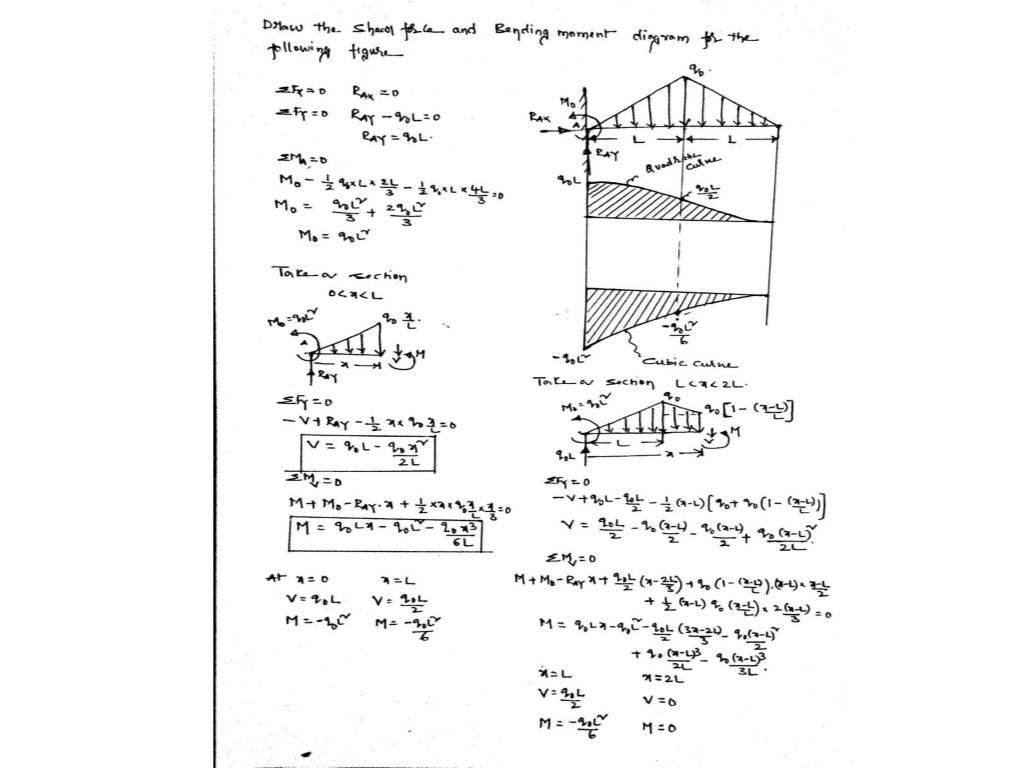 Draw the shear force and Bending moment diagram for the
following figure
ΣFx=0 RAX=0
ΣFY=0 RAY-q₀L=0
RAY=q₀L.
ΣMA=0
M₀-½q₀×L×2L/3-½q₀×L×4L/3=0
M₀=q₀L²/3+2q₀L²/3
M₀=q₀L²
Take a section
0<x<L
M₀=q₀L²
q₀x/L.
A
x
M
RAY
ΣFY=0
-V+RAY-½x×q₀x/L=0
V=q₀L-q₀x²/2L
ΣM=0
M+M₀-RAY·x+½×x×q₀x/L×x/3=0
M=q₀Lx-q₀L²-q₀x³/6L
At x=0 x=L
V=q₀L V=q₀L/2
M=-q₀L² M=-q₀L²/6
q₀.
M₀
RAX
A
L
L
RAY
Quadratic curve
q₀L
q₀L/2
-q₀L²/6
-q₀L²
Cubic curve
Take a section L<x<2L.
M₀=q₀L²
q₀
q₀[1-(x-L)/L]
M
L
x
q₀L
ΣFY=0
-V+q₀L-q₀L/2-½(x-L)[q₀+q₀(1-(x-L)/L)]
V=q₀L/2-q₀(x-L)/2-q₀(x-L)/2+q₀(x-L)²/2L.
ΣM=0
M+M₀-RAY x+q₀L/2(x-2L/3)+q₀(1-(x-L)/L).(x-L)×x-L/2
+½(x-L)q₀(x-L/L)×2(x-L)/3=0
M=q₀Lx-q₀L²-q₀L/2(3x-2L)/3-q₀(x-L)²/2
+q₀(x-L)³/2L-q₀(x-L)³/3L.
x=L x=2L
V=q₀L/2 V=0
M=-q₀L²/6 M=0